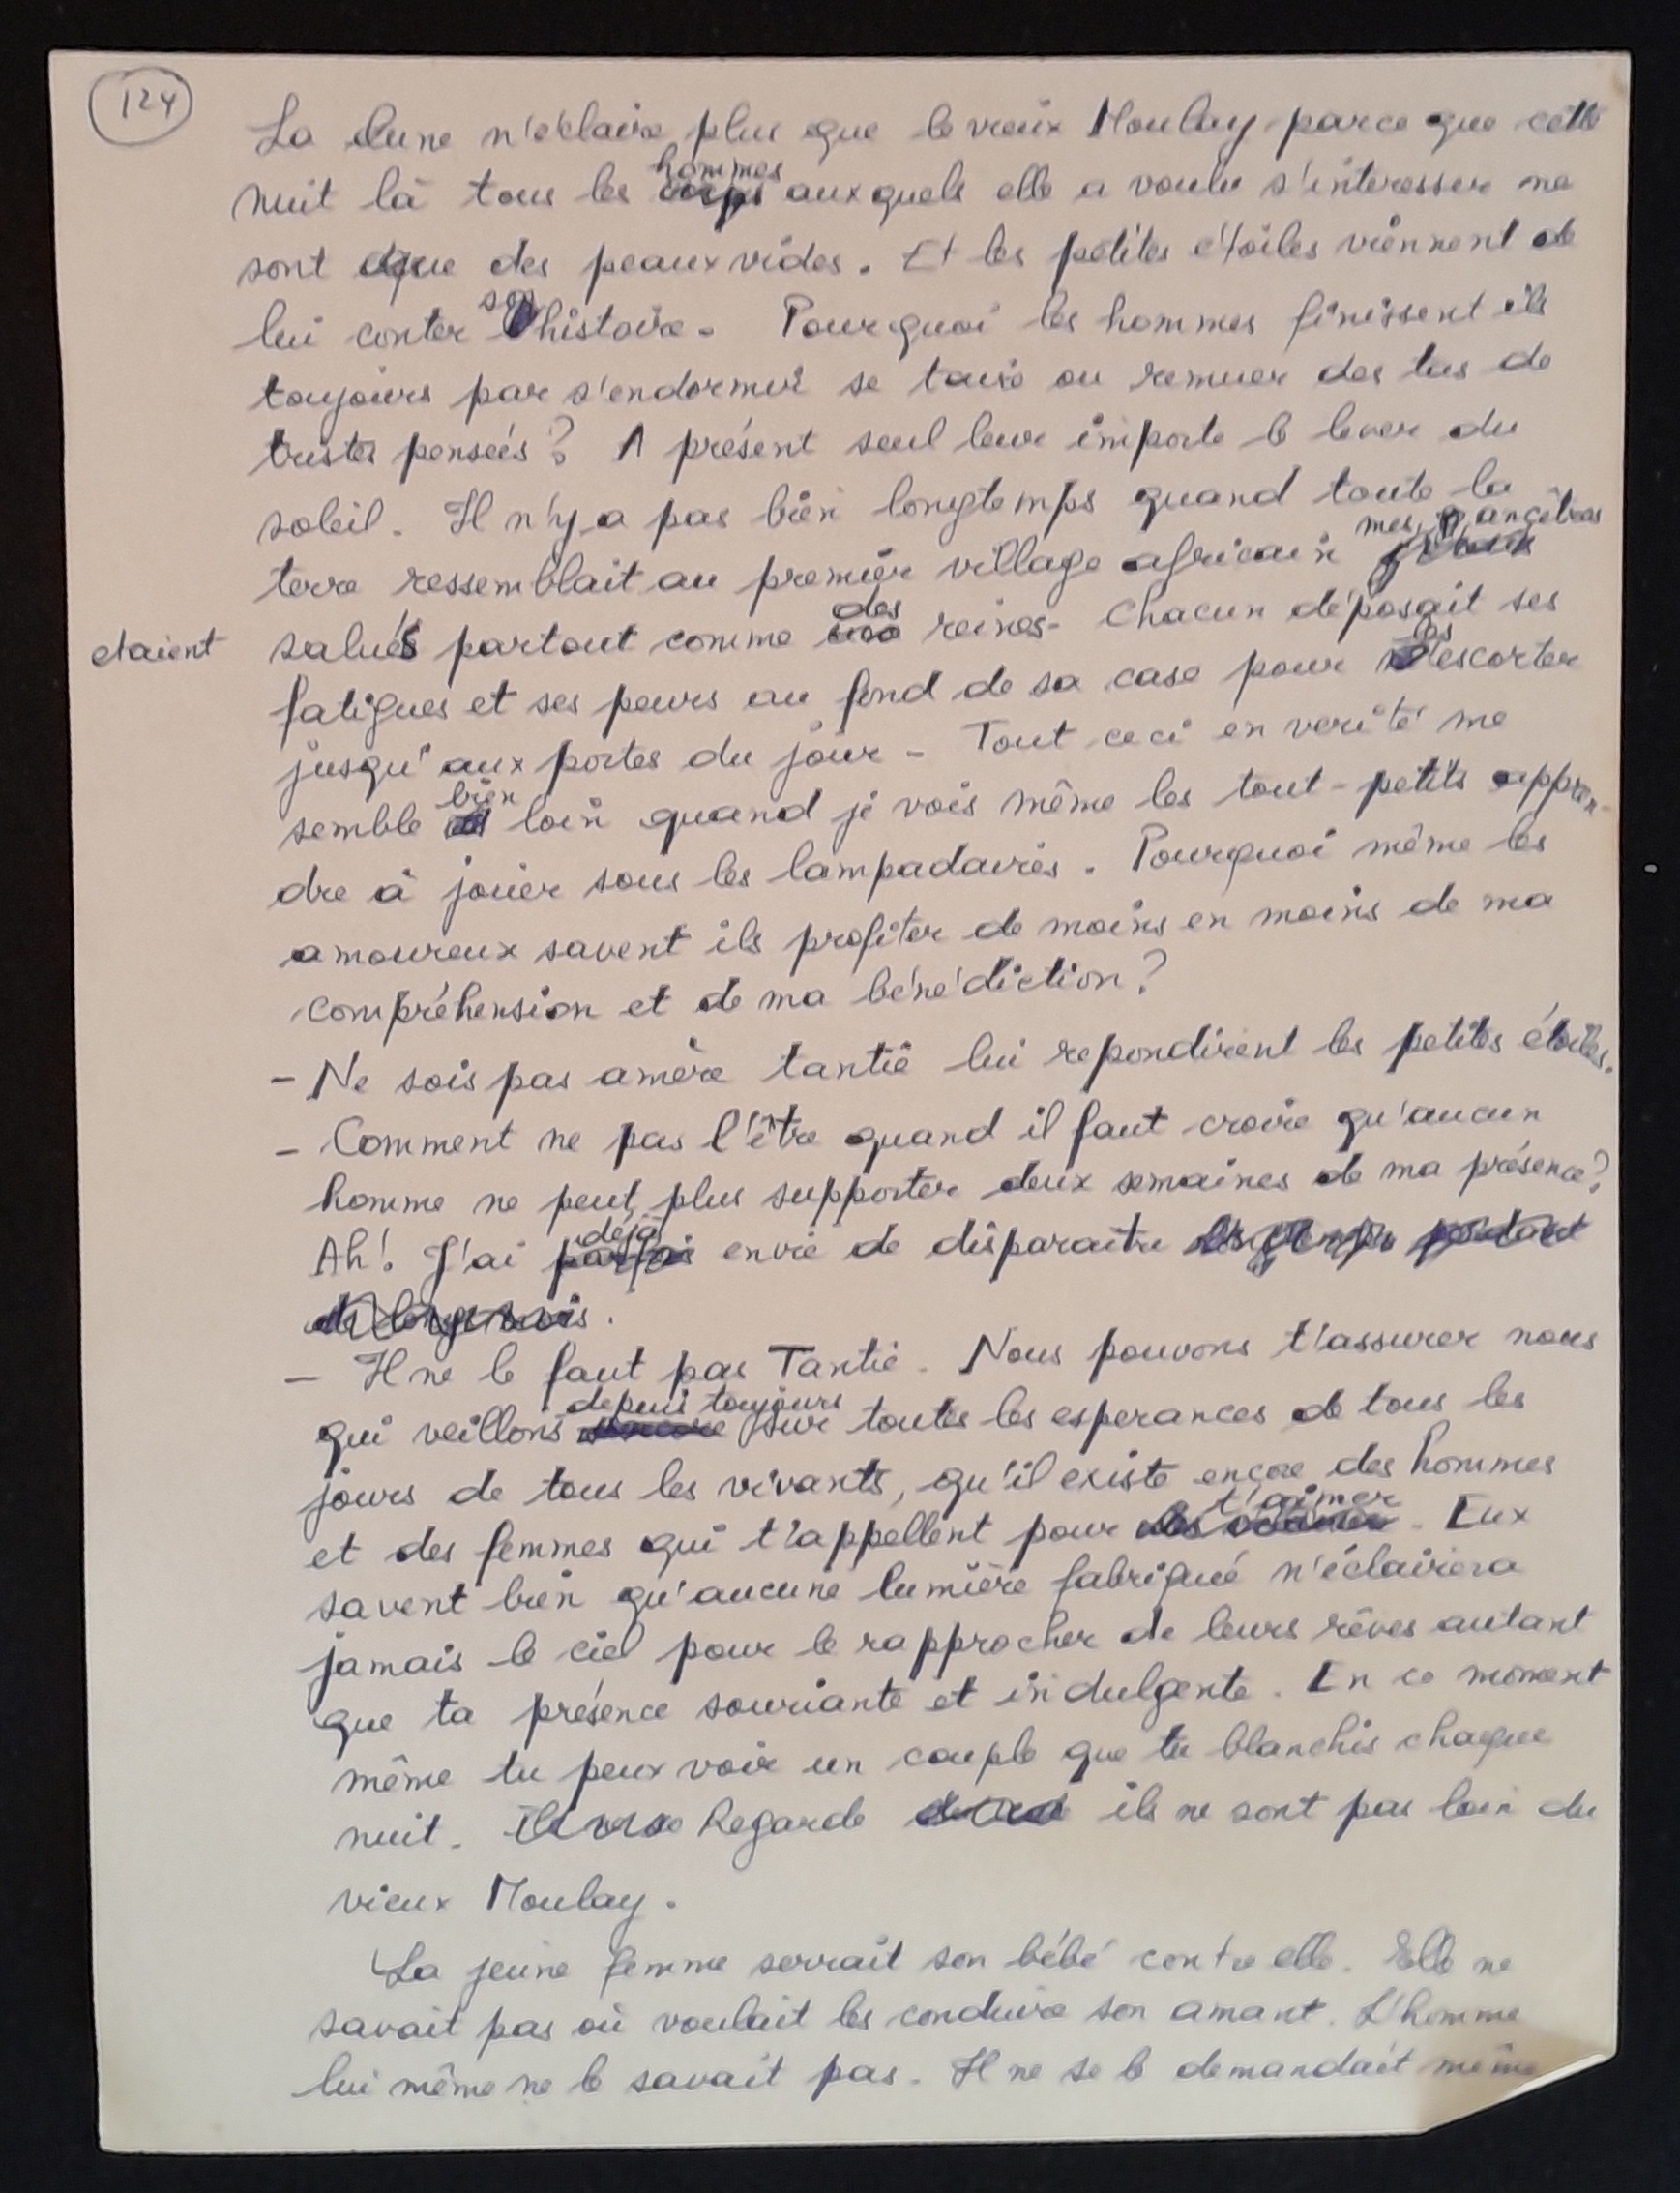 124
La lune n'éclaire plus que le vieux Moulay parce que cette
nuit là tous les hommes auxquels elle a voulu s'interesser ne
sont que des peaux vides. Et les petites étoiles viennent de
lui conter son histoire. Pourquoi les hommes finissent ils
toujours par s'endormir se taire ou remuer des tas de
tristes pensées? A présent seul leur importe le lever du
soleil. Il n'y a pas bien longtemps quand toute la
terre ressemblait au premier village africain mes ancêtres
etaient salués partout comme des reines. Chacun déposait ses
fatigues et ses peurs au fond de sa case pour les escorter
jusqu'aux portes du jour - Tout ceci en verité me
semble bien loin quand je vois même les tout-petits appren-
dre à jouer sous les lampadaires. Pourquoi même les
amoureux savent ils profiter de moins en moins de ma
compréhension et de ma bénédiction?
- Ne sois pas amère tantie lui repondirent les petites étoiles.
- Comment ne pas l'être quand il faut croire qu'aucun
homme ne peut plus supporter deux semaines de ma présence?
Ah! J'ai déjà envie de disparaitre
.
- Il ne le faut pas Tantie. Nous pouvons t'assurer nous
qui veillons depuis toujours sur toutes les esperances de tous les
jours de tous les vivants, qu'il existe encore des hommes
et des femmes qui t'appellent pour t'aimer. Eux
savent bien qu'aucune lumière fabriqué n'éclairera
jamais le ciel pour le rapprocher de leurs rêves autant
que ta présence souriante et indulgente. En ce moment
même tu peux voir un couple que tu blanchis chaque
nuit. Regarde ils ne sont pas loin du
vieux Moulay.
La jeune femme serrait son bébé contre elle. Elle ne
savait pas où voulait les conduire son amant. L'homme
lui même ne le savait pas. Il ne se le demandait même